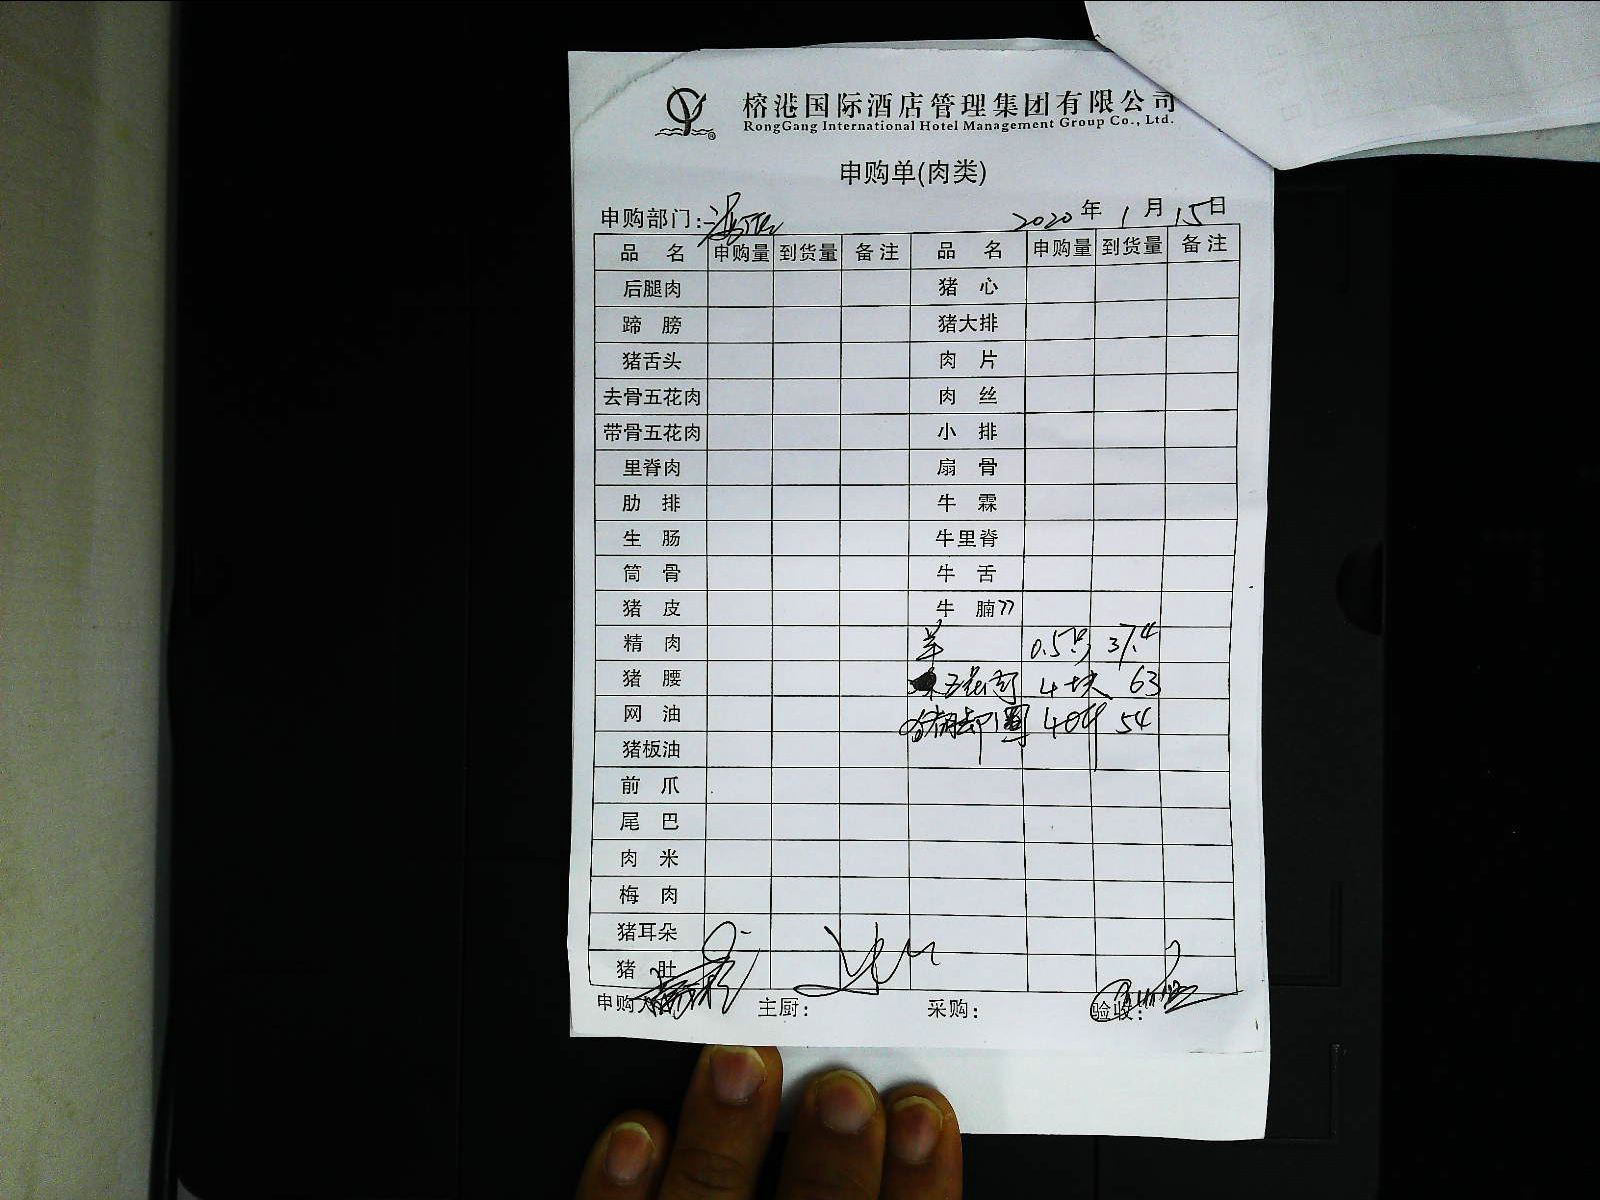 榕港国际酒店管理集团有限公司
RongGang International Hotel Management Group Co., Ltd.
申购单(肉类)
申购部门: 2020年1月15日
品名 申购量 到货量 备注 品名 申购量 到货量 备注
后腿肉 猪心
蹄膀 猪大排
猪舌头 肉片
去骨五花肉 肉丝
带骨五花肉 小排
里脊肉 扇骨
肋排 牛霖
生肠 牛里脊
筒骨 牛舌
猪皮 牛腩
精肉 羊 0.5只 37.4
猪腰 五花肉 4块 63
网油 54
猪板油
前爪
尾巴
肉米
梅肉
猪耳朵
猪肚
申购人 主厨: 采购: 验收: